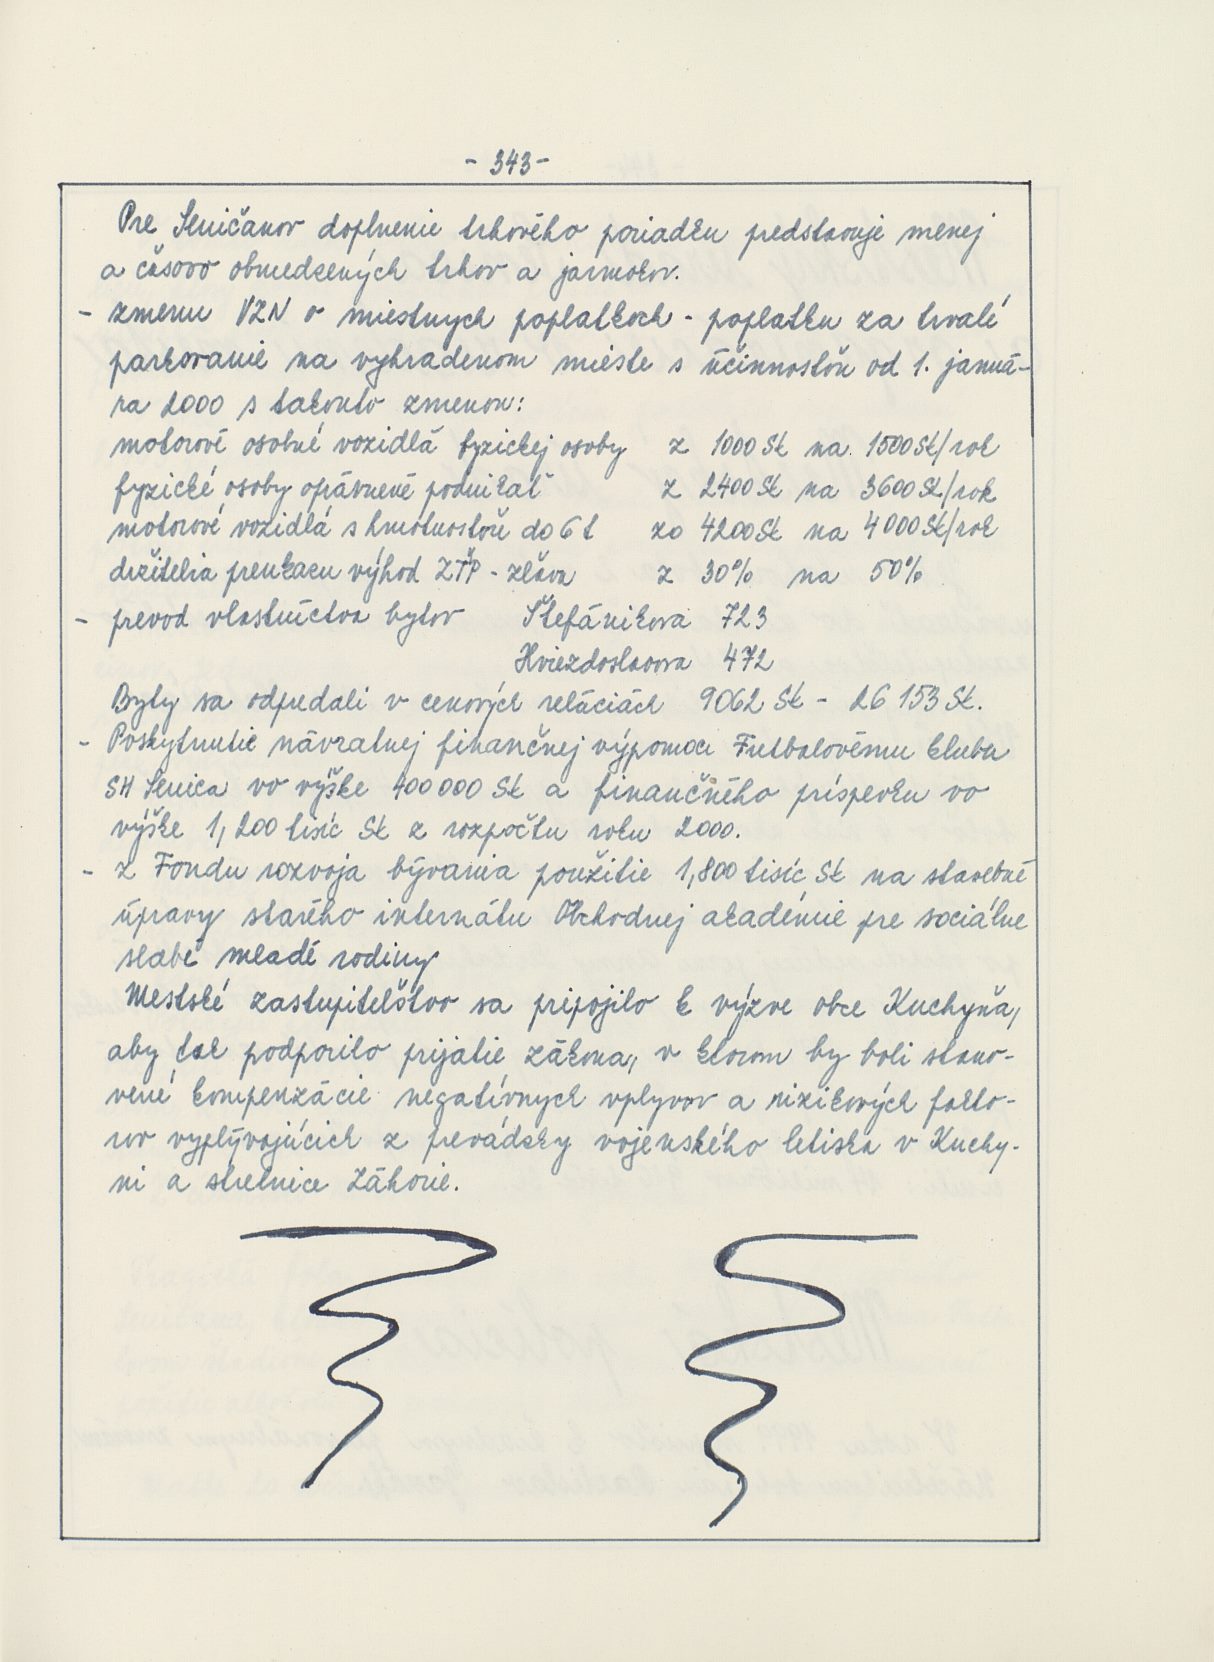 - 343 -
Pre Seničanov doplnenie trhového poriadku predstavuje menej
a časovo obmedzených trhov a jarmokov.
- zmenu VZN o miestnych poplatkoch - poplatku za trvalé
parkovanie na vyhradenom mieste s účinnosťou od 1. januá-
ra 2000 s takouto zmenou:
motorové osobné vozidlá fyzickej osoby z 1000 Sk na 1500 Sk/rok
fyzické osoby oprávnené podnikať z 2400 Sk na 3600 Sk/rok
motorové vozidlá s hmotnosťou do 6 t zo 4200 Sk na 4000 Sk/rok
držitelia preukazu výhod ZŤP - zľava z 30% na 50%
- prevod vlastníctva bytov Štefánikova 723
Hviezdoslavova 472
Byty sa odpredali v cenových reláciách 9062 Sk - 26 153 Sk.
- Poskytnutie návratnej finančnej výpomoci Futbalovému klubu
SH Senica vo výške 400 000 Sk a finančného príspevku vo
výške 1,200 tisíc Sk z rozpočtu roku 2000.
- z Fondu rozvoja bývania použitie 1,800 tisíc Sk na stavebné
úpravy starého internátu Obchodnej akadémie pre sociálne
slabé mladé rodiny
Mestské zastupiteľstvo sa pripojilo k výzve obce Kuchyňa,
aby tak podporilo prijatie zákona, v ktorom by boli stano-
vené kompenzácie negatívnych vplyvov a rizikových fakto-
rov vyplývajúcich z prevádzky vojenského letiska v Kuchy-
ni a strelnice Záhorie.